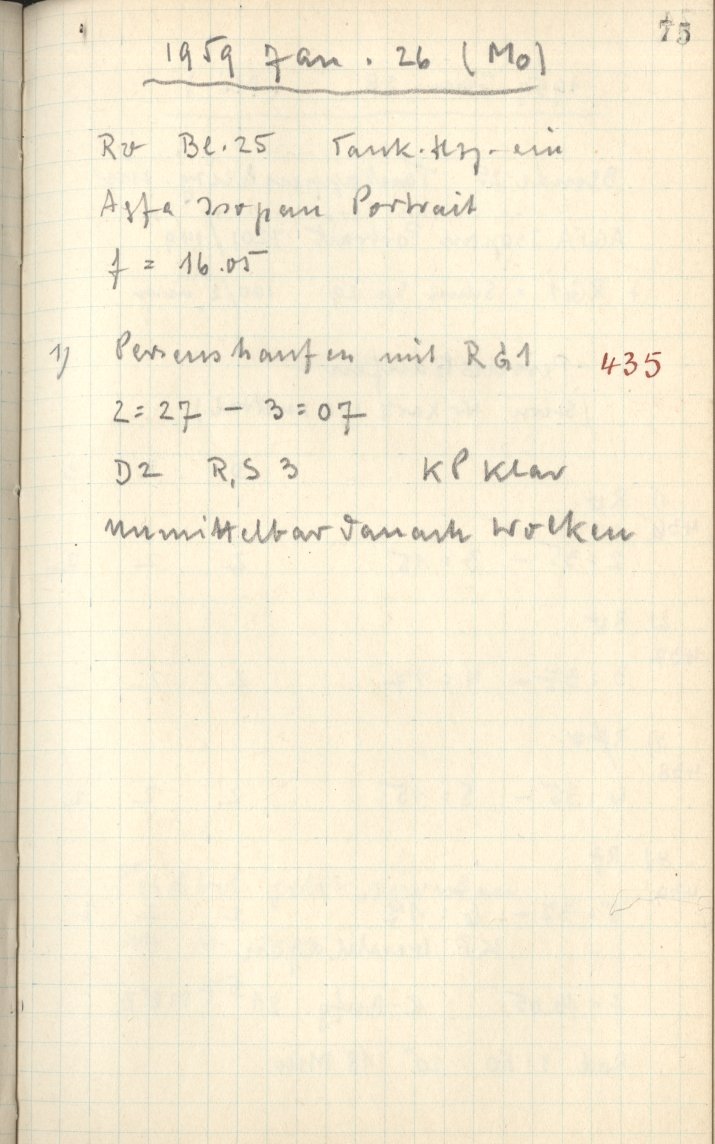 75
1959 Jan. 26 (Mo)
Rv Bl. 25 Tauk. Hzg. ein
Agfa Isopan Portrait
f = 16.05
1) Perseushaufen mit RG1 435
2=27 - 3=07
D2 R,S 3 KP klar
unmittelbar danach Wolken